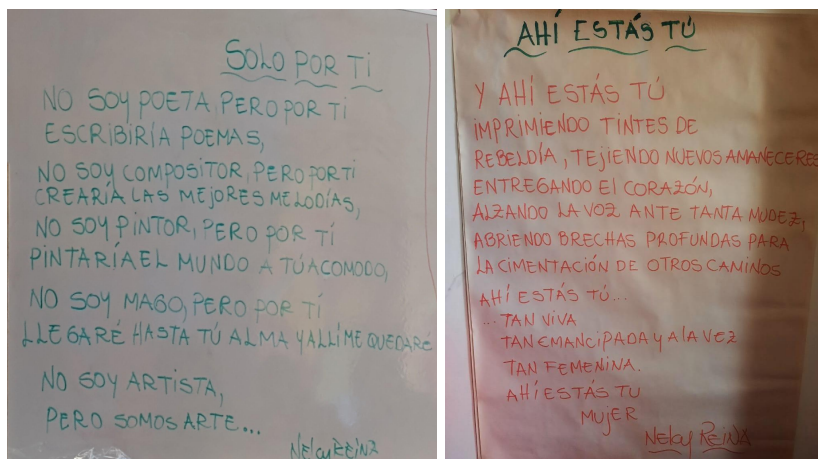 SOLO POR TI
NO SOY POETA, PERO POR TI
ESCRIBIRÍA POEMAS,
NO SOY COMPOSITOR, PERO POR TI
CREARÍA LAS MEJORES MELODÍAS,
NO SOY PINTOR, PERO POR TÍ
PINTARÍA EL MUNDO A TÚ ACOMODO,
NO SOY MAGO, PERO POR TÍ
LLEGARÉ HASTA TÚ ALMA Y ALLÍ ME QUEDARÉ
NO SOY ARTISTA,
PERO SOMOS ARTE...
NELCY REINA
AHÍ ESTÁS TÚ
Y AHÍ ESTÁS TÚ
IMPRIMIENDO TINTES DE
REBELDÍA, TEJIENDO NUEVOS AMANECERES
ENTREGANDO El CORAZÓN,
ALZANDO LA VOZ ANTE TANTA MUDEZ,
ABRIENDO BRECHAS PROFUNDAS PARA
LA CIMENTACIÓN DE OTROS CAMINOS
AHÍ ESTÁS TÚ...
...TAN VIVA
TAN EMANCIPADA Y A LA VEZ
TAN FEMENINA.
AHÍ ESTÁS TU
MUJER
NELCY REINA